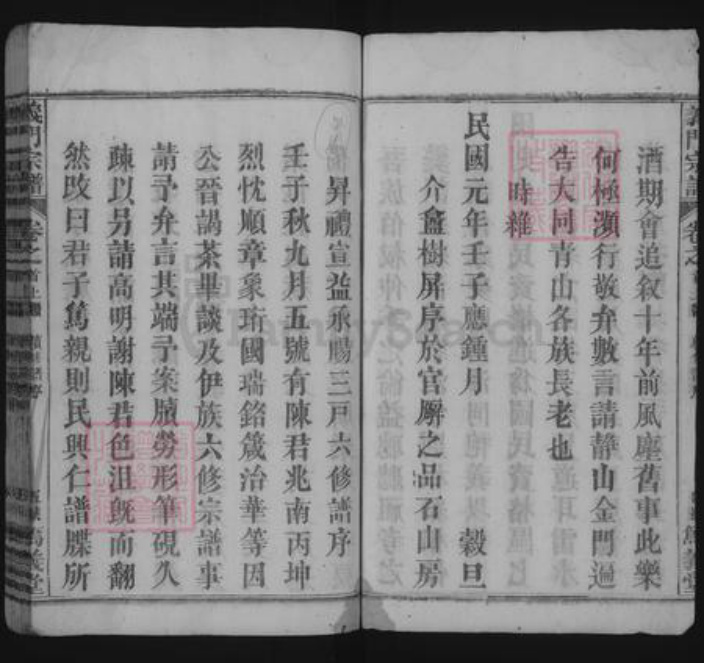 酒期會追敘十年前風塵舊事此樂
何極瀕行敬弁數言請靜山金門過
告大同青山各族長老也
時雜
民國元年壬子應鍾月 穀旦
介盦樹屏序於官廨之品石山房
義門宗譜 卷之首上
昇禮宣益承賜三戶六修譜序
壬子秋九月五號有陳君兆南丙坤
烈忱順章象珩國瑞銘箴治華等因
公晉謁茶畢談及伊族六修宗譜事
請予弁言其端予案牘勞形筆硯久
疎以另請高明謝陳君色沮既而翻
然改曰君子篤親則民興仁譜牒所
義門宗譜 卷之
FamilySearch